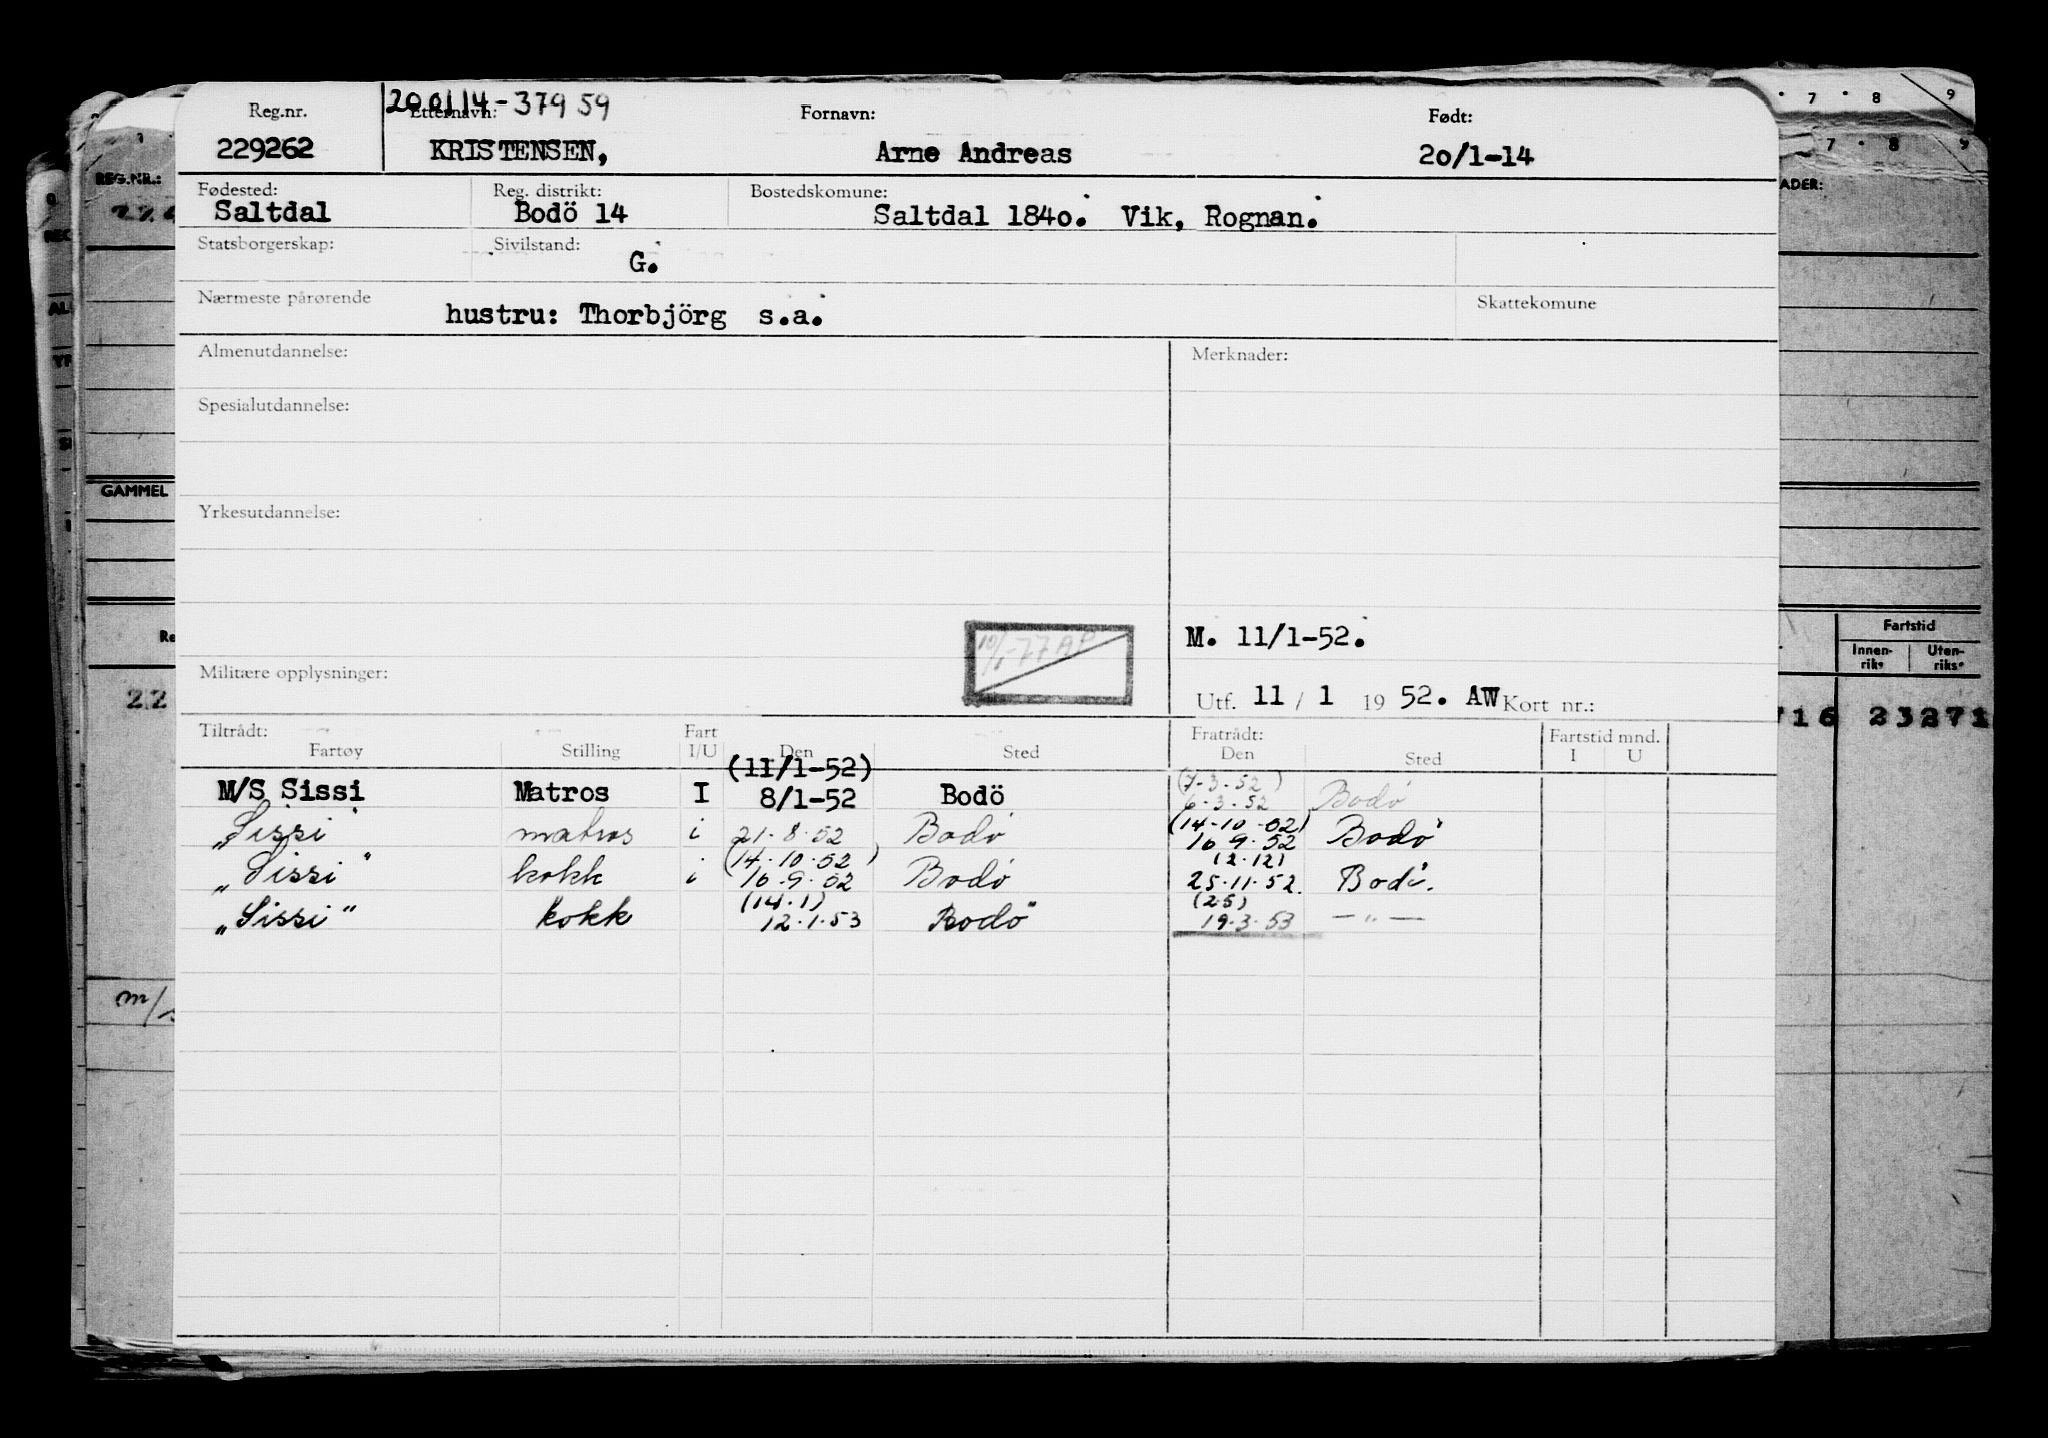 200114-37959
Reg.nr. Etternavn: Fornavn: Født:
229262 KRISTENSEN, Arne Andreas 20/1-14
Fødested: Reg. distrikt: Bostedskomune:
Saltdal Bodö 14 Saltdal 1840. Vik, Rognan.
Statsborgerskap: Sivilstand:
G.
Nærmeste pårørende Skattekomune
hustru: Thorbjörg s.a.
Almenutdannelse: Merknader:
Spesialutdannelse:
Yrkesutdannelse:
10/1-77 AP
M. 11/1-52.
Militære opplysninger:
Utf. 11 / 1 19 52. AW Kort nr.:
Tiltrådt: Fart Fratrådt: Fartstid mnd.
Fartøy Stilling I/U Den Sted Den Sted I U
(11/1-52) (7-3-52)
M/S Sissi Matros I 8/1-52 Bodö 6-3-52 Bodø
(14-10-52)
"Sissi" matros i 21-8-52 Bodø 16 9-52 Bodø
(14-10-52) (2-12)
"Sissi" kokk i 16-9-52 Bodø 25-11-52. Bodø.
(14-1) (25)
"Sissi" kokk 12-1-53 Bodø 19-3-53 — " —
REG.NR.:
GAMMEL
22
m/s
7 8 9
7 8 9
ADER:
Fartstid
Innen-riks Uten-riks
716 23271